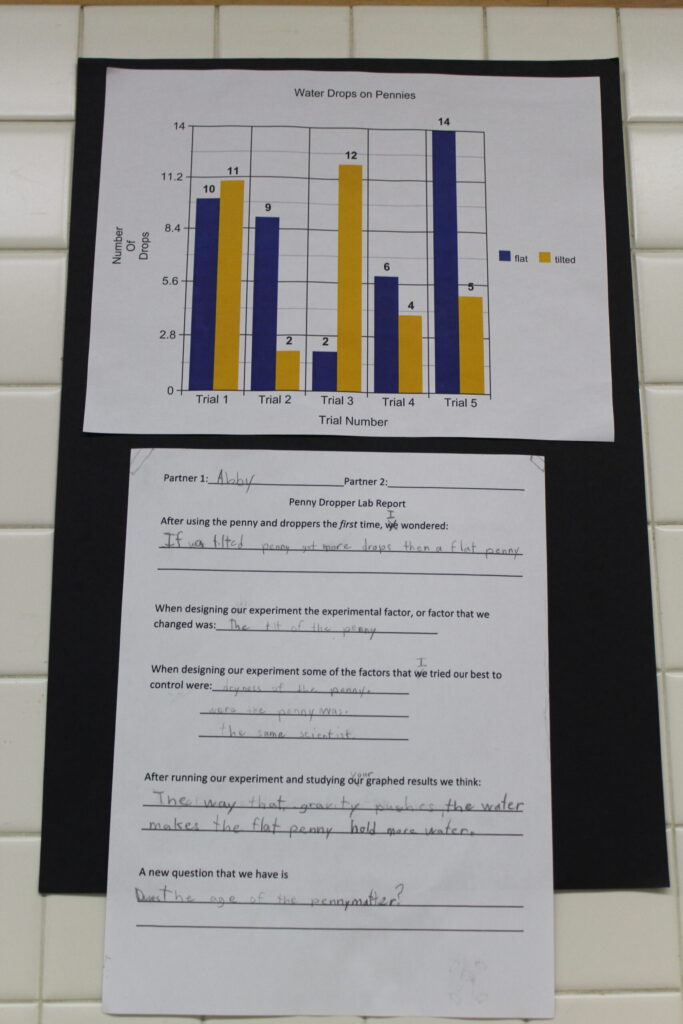 Water Drops on Pennies
14
14
12
11.2
11
10
9
8.4
Number
Of
Drops
flat
tilted
6
5.6
5
4
2.8
2
2
0
Trial 1
Trial 2
Trial 3
Trial 4
Trial 5
Trial Number
Partner 1: Abby Partner 2:
Penny Dropper Lab Report
I
After using the penny and droppers the first time, we wondered:
If a tilted penny got more drops then a flat penny
When designing our experiment the experimental factor, or factor that we
changed was: The tilt of the penny
I
When designing our experiment some of the factors that we tried our best to
control were: dryness of the penny.
were the penny was.
the same scientist.
your
After running our experiment and studying our graphed results we think:
The way that gravity pushes the water
makes the flat penny hold more water.
A new question that we have is
Does the age of the penny matter?